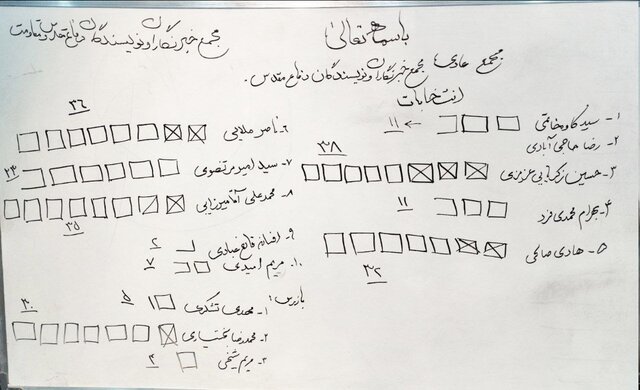 باسمه تعالی
مجمع خبرنگاران و نویسندگان دفاع مقدس و مقاومت
مجمع عادی مجمع خبرنگاران و نویسندگان دفاع مقدس.
انتخابات
۱- سید کاوه خاتمی ← ۱۱
۲- رضا حاجی آبادی
۳- حسین زکریایی عزیزی ۳۸
۴- بهرام محمدی فرد ۱۱
۵- هادی صالحی ۳۲
۶- ناصر ملایی ۳۶
۷- سید امیر مرتضوی ۲۳
۸- محمدعلی آقامیرزایی ۳۵
۹- افسانه قانع عبادی ۲
۱۰- مریم امیدی ۷
بازرس:
۱- مهدی تشکری ۵
۲- محمدرضا بختیاری ۳۰
۳- مریم شیخی ۴